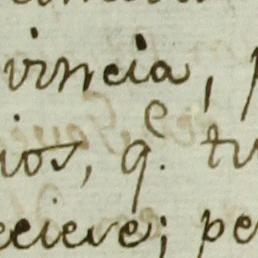 vincia, p
ios, q.e tu
eciere; pe